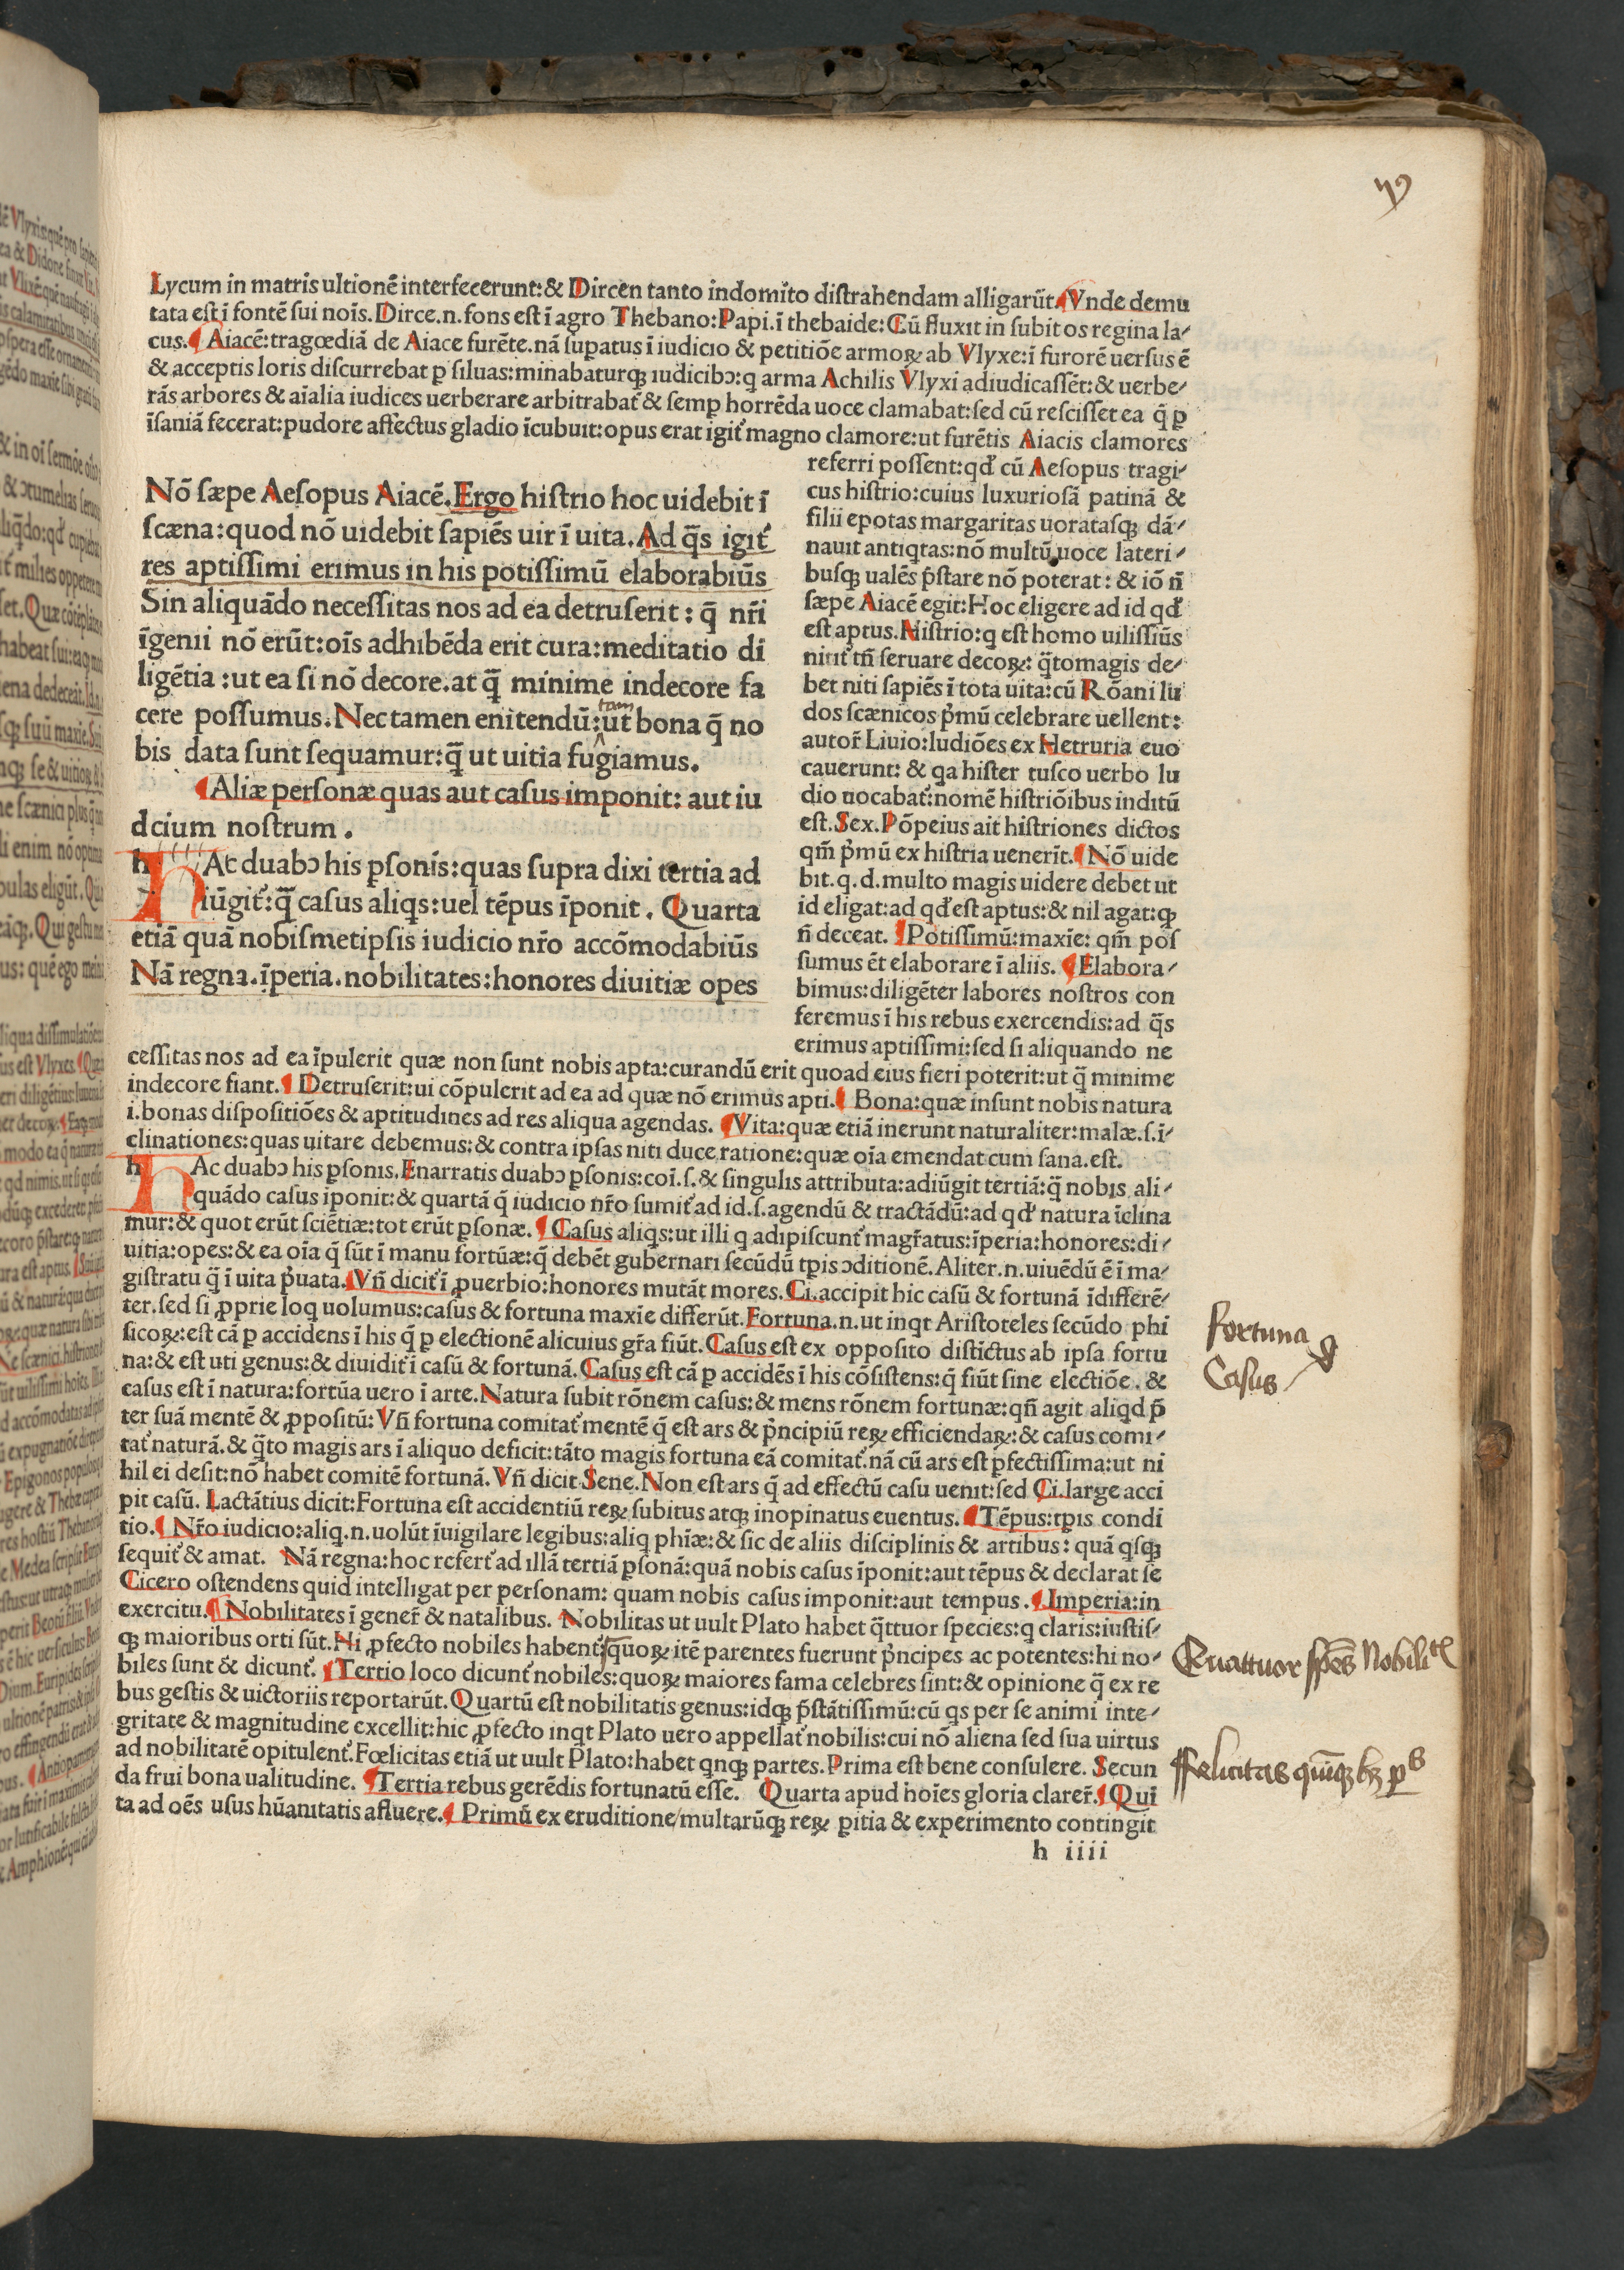 Lycum in matris ultionē interfecerunt:& Dircen tanto indomito distrahendam alligarūt.¶Vnde demu
tata est ī fontē sui noīs.Dirce.n.fons est ī agro Thebano:Papi.ī thebaide:Cū fluxit in subitos regina la⸗
cus.¶Aiacē:tragœdiā de Aiace furēte.nā supatus ī iudicio & petitiōe armoꝝ ab Vlyxe:ī furorē uersus ē
& acceptis loris discurrebat ꝑ siluas:minabaturqꝫ iudicibↄ:q arma Achilis Vlyxi adiudicassēt:& uerbe⸗
rās arbores & aīalia iudices uerberare arbitrabat᷑ & semꝑ horrēda uoce clamabat:sed cū rescisset ea q̄ ꝑ
īsaniā fecerat:pudore affectus gladio īcubuit:opus erat igit᷑ magno clamore:ut furētis Aiacis clamores
referri possent:qđ cū Aesopus tragi⸗
cus histrio:cuius luxuriosā patinā &
filii epotas margaritas uoratasqꝫ dā⸗
nauit antiqtas:nō multū uoce lateri⸗
busqꝫ ualēs p̄stare nō poterat: & iō n̄
sæpe Aiacē egit:Hoc eligere ad id qđ
est aptus.Histrio:q est homo uilissiūs
nitit᷑ tn̄ seruare decoꝝ: q̄tomagis de⸗
bet niti sapiēs ī tota uita:cū Rōani lu
dos scænicos p̓mū celebrare uellent:
autor᷑ Liuio:ludiōes ex Hetruria euo
cauerunt: & qa hister tusco uerbo lu
dio uocabat᷑:nomē histriōibus inditū
est.Sex.Pōpeius ait histriones dictos
qm̄ p̓mū ex histria uenerīt.¶Nō uide
bit.q.d.multo magis uidere debet ut
id eligat:ad qđ est aptus:& nil agat:qꝫ
n̄ deceat. ¶Potissimū:maxīe: qm̄ pos
sumus ēt elaborare ī aliis. ¶Elabora⸗
bimus:diligēter labores nostros con
feremus ī his rebus exercendis:ad q̄s
erimus aptissimi:sed si aliquando ne
Nō sæpe Aesopus Aiacē.Ergo histrio hoc uidebit ī
scæna:quod nō uidebit sapiēs uir ī uita.Ad q̄s igit᷑
res aptissimi erimus in his potissimū elaborabiūs
Sin aliquādo necessitas nos ad ea detruserit: q̄ nr̄i
īgenii nō erūt:oīs adhibēda erit cura:meditatio di
ligētia :ut ea si nō decore.at q̄ minime indecore fa
tam
cere possumus.Nec tamen enitendū:ut bona q̄ no
bis data sunt sequamur:q̄ ut uitia fugiamus.
¶Aliæ personæ quas aut casus imponit: aut iu
dcium nostrum.
hAc duabↄ his ꝑsonis:quas supra dixi tertia ad
iūgit᷑:q̄ casus aliqs:uel tēpus īponit. Quarta
etiā quā nobismetipsis iudicio nr̄o accōmodabiūs
Nā regna.īperia.nobilitates:honores diuitiæ opes
cessitas nos ad ea īpulerit quæ non sunt nobis apta:curandū erit quoad eius fieri poterit:ut q̄ minime
indecore fiant.¶Detruserit:ui cōpulerit ad ea ad quæ nō erimus apti.¶Bona:quæ insunt nobis natura
i.bonas dispositiōes & aptitudines ad res aliqua agendas. ¶Vita:quæ etiā inerunt naturaliter:malæ.s.i⸗
clinationes:quas uitare debemus:& contra ipsas niti duce ratione:quæ oīa emendat cum sana.est.
hAc duabↄ his ꝑsonis.Enarratis duabↄ ꝑsonis:coī.s.& singulis attributa:adiūgit tertiā:q̄ nobis ali⸗
quādo casus īponit:& quartā q̄ iudicio nr̄o sumit᷑ ad id.s.agendū & tractādū:ad qđ natura īclina
mur:& quot erūt sciētiæ:tot erūt ꝑsonæ.¶Casus aliqs:ut illi q adipiscunt᷑ magr̄atus:īperia:honores:di⸗
uitia:opes:& ea oīa q̄ sūt ī manu fortūæ:q̄ debēt gubernari secūdū tꝑis ↄditionē.Aliter.n.uiuēdū ē ī ma⸗
gistratu q̄ ī uita p̓uata.¶Vn̄ dicit᷑ ī ꝓuerbio:honores mutāt mores.Ci.accipit hic casū & fortunā īdifferē⸗
ter.sed si ꝓprie loq uolumus:casus & fortuna maxīe differūt.Fortuna.n.ut inqt Aristoteles secūdo phi
sicoꝝ:est cā ꝑ accidens ī his q̄ ꝑ electionē alicuius gr̄a fiūt.Casus est ex opposito distīctus ab ipsa fortu
na:& est uti genus:& diuidit᷑ ī casū & fortunā.Casus est cā ꝑ accidēs ī his cōsistens:q̄ fiūt sine electiōe.&
casus est ī natura:fortūa uero ī arte.Natura subit rōnem casus:& mens rōnem fortunæ:qn̄ agit aliqd p̄
ter suā mentē & ꝓpositū:Vn̄ fortuna comitat᷑ mentē q̄ est ars & p̓ncipiū reꝝ efficiendaꝝ:& casus comi⸗
tat᷑ naturā.& q̄to magis ars ī aliquo deficit:tāto magis fortuna eā comitat᷑.nā cū ars est ꝑfectissima:ut ni
hil ei desit:nō habet comitē fortunā.Vn̄ dicit Sene.Non est ars q̄ ad effectū casu uenit:sed Ci.large acci
pit casū. Lactātius dicit:Fortuna est accidentiū reꝝ subitus atqꝫ inopinatus euentus.¶Tēpus:tꝑis condi
tio.¶Nr̄o iudicio:aliq.n.uolūt īuigilare legibus:aliq phīæ:& sic de aliis disciplinis & artibus: quā qsqꝫ
sequit᷑ & amat. Nā regna:hoc refert᷑ ad illā tertiā ꝑsonā:quā nobis casus īponit:aut tēpus & declarat se
Cicero ostendens quid intelligat per personam: quam nobis casus imponit:aut tempus.¶Imperia:in
exercitu.¶Nobilitates ī gener᷑ & natalibus. Nobilitas ut uult Plato habet q̄ttuor species:q claris:iustis⸗
qꝫ maioribus orti sūt.Hi ꝓfecto nobiles habent᷑ quoꝝ itē parentes fuerunt p̓ncipes ac potentes:hi no⸗
biles sunt & dicunt᷑. ¶Tertio loco dicunt᷑ nobiles:quoꝝ maiores fama celebres sint:& opinione q̄ ex re
bus gestis & uictoriis reportarūt.Quartū est nobilitatis genus:idqꝫ p̄stātissimū:cū qs per se animi inte⸗
gritate & magnitudine excellit:hic ꝓfecto inqt Plato uero appellat᷑ nobilis:cui nō aliena sed sua uirtus
ad nobilitatē opitulent᷑.Fœlicitas etiā ut uult Plato:habet qnqꝫ partes.Prima est bene consulere. Secun
da frui bona ualitudine. ¶Tertia rebus gerēdis fortunatū esse. Quarta apud hoīes gloria clarer᷑.¶Qui
ta ad oēs usus hūanitatis afluere.¶Primū ex eruditione/multarūqꝫ reꝝ ꝑitia & experimento contingit
h iiii
fortuna
Casus
Quattuor spēs Nobilitꝭ
Ffelicitas quīqꝫ hꝫ ꝑs